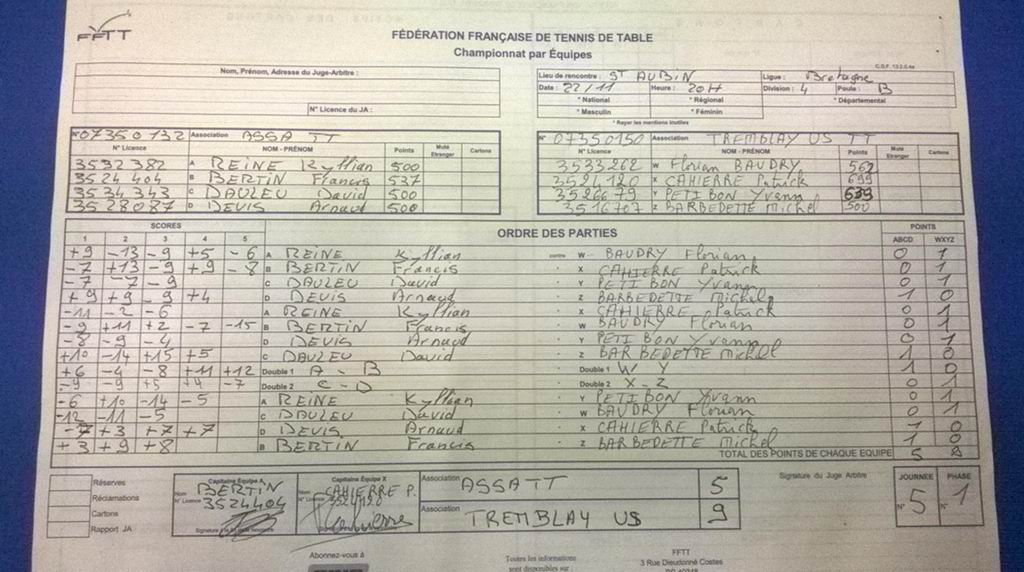 FFTT
FÉDÉRATION FRANÇAISE DE TENNIS DE TABLE
Championnat par Équipes
C.G.F. 13.2.5.4a
Nom, Prénom, Adresse du Juge-Arbitre :
N° Licence du JA :
Lieu de rencontre : ST AUBIN Ligue : Bretagne
Date : 22/11 Heure : 20H Division : 4 Poule : B
* National * Régional * Départemental
* Masculin * Féminin
* Rayer les mentions inutiles
N° 07350132 Association ASSA TT
N° Licence NOM - PRÉNOM Points Muté Etranger Cartons
3532382 A REINE Kyllian 500
3524404 B BERTIN Francis 537
3534343 C DAULEU David 500
3528087 D DEVIS Arnaud 500
N° 07350150 Association TREMBLAY US TT
N° Licence NOM - PRÉNOM Points Muté Etranger Cartons
3533262 W Florian BAUDRY 562
3521120 X CAHIERRE Patrick 699
3526679 Y PETIBON Yvann 639
3516707 Z BARBEDETTE Michel 500
SCORES ORDRE DES PARTIES POINTS
1 2 3 4 5 ABCD WXYZ
+9 -13 -9 +5 -6 A REINE Kyllian contre W BAUDRY Florian 0 1
-7 +13 -9 +9 -8 B BERTIN Francis X CAHIERRE Patrick 0 1
-7 -7 -9 C DAULEU David Y PETIBON Yvann 0 1
+9 +9 -9 +4 D DEVIS Arnaud Z BARBEDETTE Michel 1 0
-11 -2 -6 A REINE Kyllian X CAHIERRE Patrick 0 1
-9 +11 +2 -7 -15 B BERTIN Francis W BAUDRY Florian 0 1
-8 -9 -4 D DEVIS Arnaud Y PETIBON Yvann 0 1
+10 -14 +15 +5 C DAULEU David Z BARBEDETTE Michel 1 0
+6 -4 -8 +11 +12 Double 1 A - B Double 1 W Y 1 0
-9 -9 +5 +4 -7 Double 2 C - D Double 2 X - Z 0 1
-6 +10 -14 -5 A REINE Kyllian Y PETIBON Yvann 0 1
-12 -11 -5 C DAULEU David W BAUDRY Florian 0 1
-7 +3 +7 +7 D DEVIS Arnaud X CAHIERRE Patrick 1 0
+3 +9 +8 B BERTIN Francis Z BARBEDETTE Michel 1 0
TOTAL DES POINTS DE CHAQUE EQUIPE 5
Réserves
Réclamations
Cartons
Rapport JA
Capitaine Équipe A
Nom BERTIN
N° Licence 3524404
Capitaine Équipe X
Nom CAHIERRE P.
N° Licence
Association ASSA TT 5
Association TREMBLAY US 9
Signature du Juge Arbitre
JOURNEE N° 5
PHASE N° 1
Abonnez-vous à
Toutes les informations
sont disponibles sur :
FFTT
3 Rue Dieudonné Costes